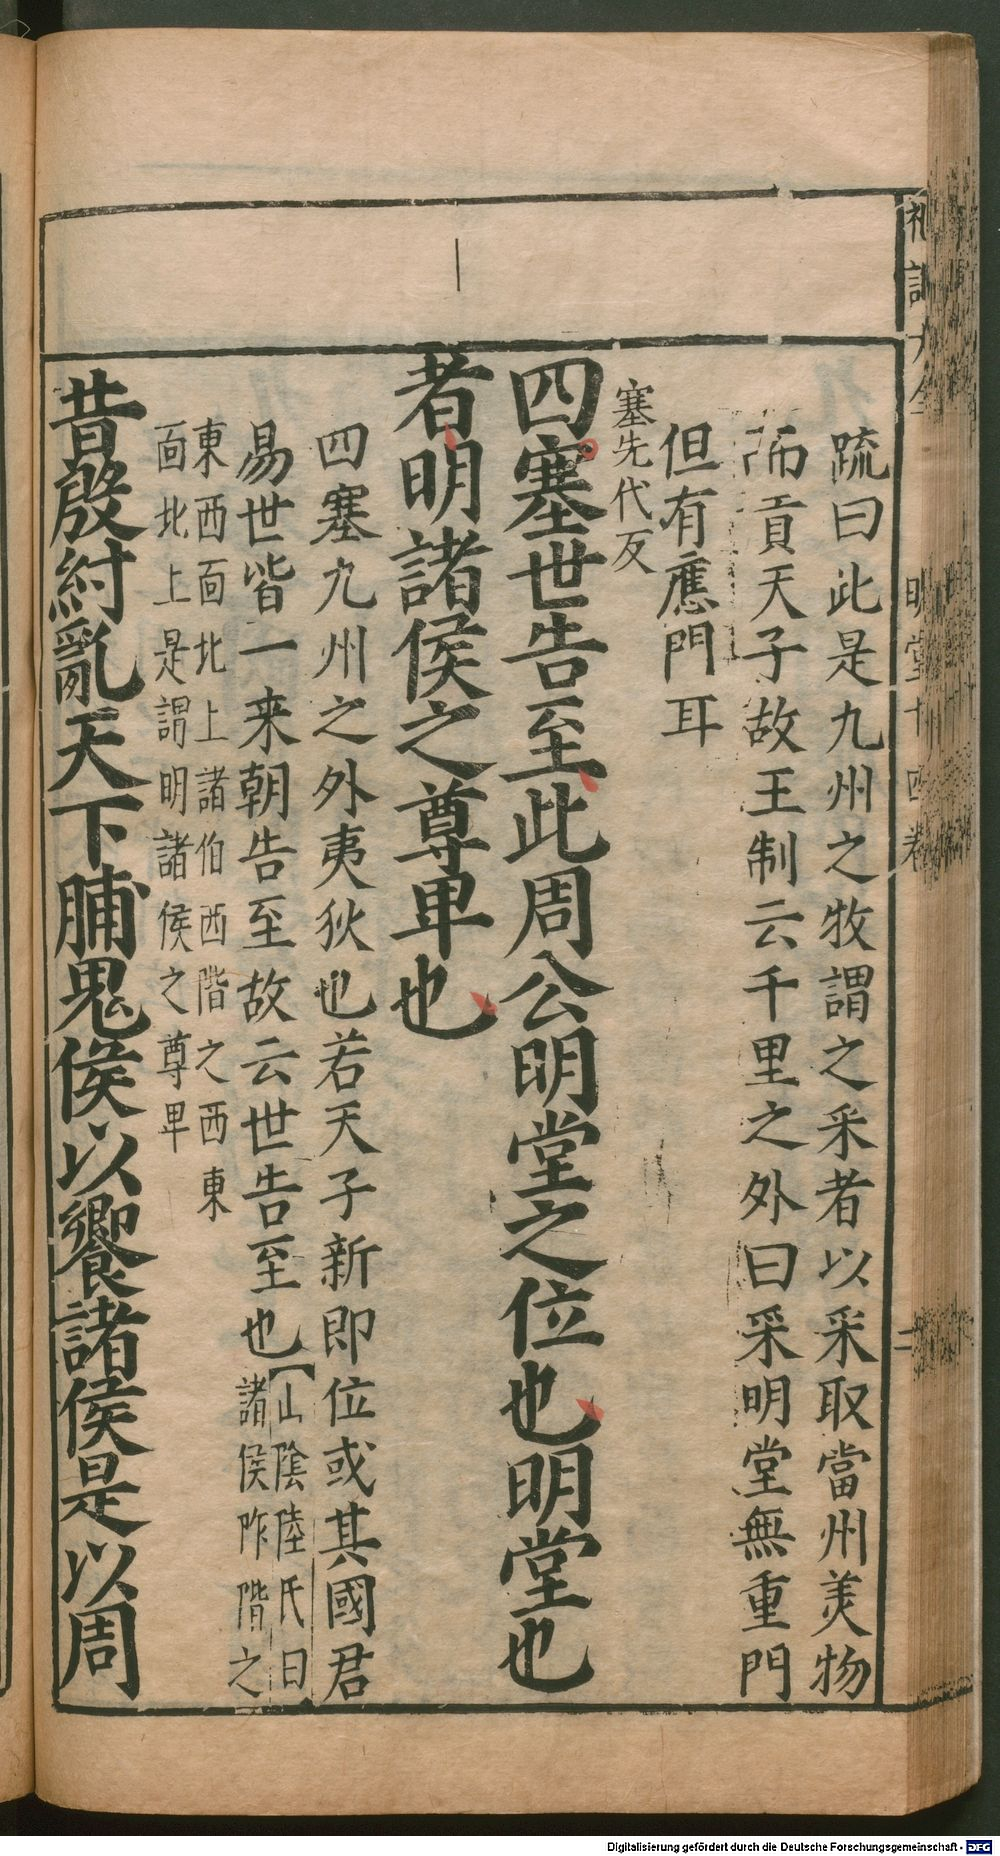 疏曰此是九州之牧謂之采者以采取當州美物
而貢天子故王制云千里之外曰采明堂無重門
但有應門耳
塞先代反
四塞世告至此周公明堂之位也明堂也
者明諸侯之尊卑也
四塞九州之外夷狄也若天子新即位或其國君
易世皆一来朝告至故云世告至也【山陰陸氏曰
諸侯阼階之
東西面北上諸伯西階之西東
面北上是謂明諸侯之尊卑
昔殷紂亂天下脯鬼侯以饗諸侯是以周
明堂十四卷
二
Digitalisierung gefördert durch die Deutsche Forschungsgemeinschaft - DFG